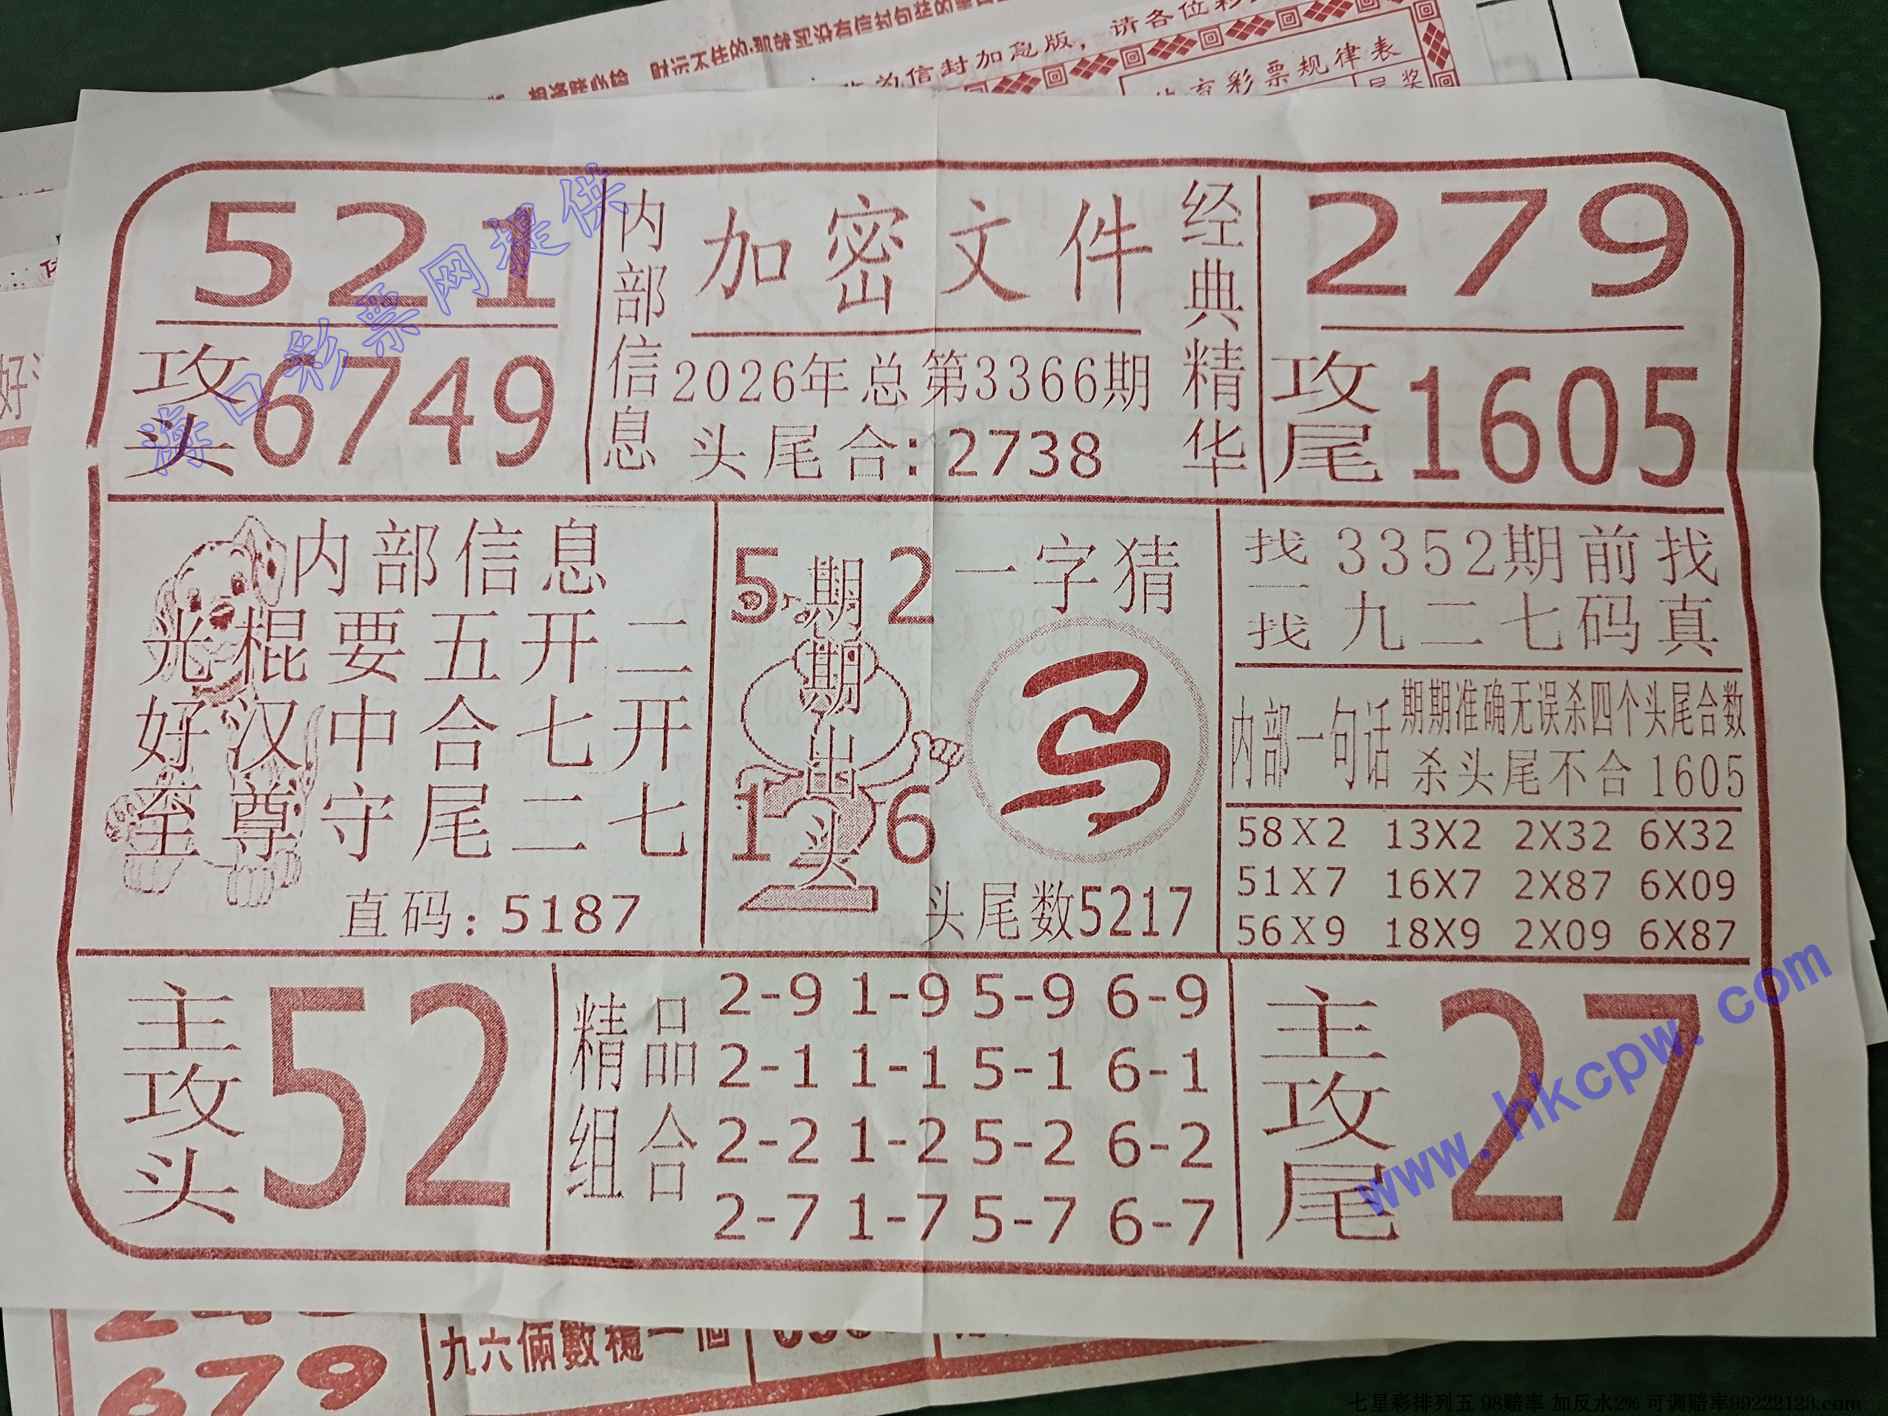 财运不佳的
为信封加急版，请各位彩
育彩票规律表
521
攻头
6749
内部信息
加密文件
2026年总第3366期
头尾合:2738
经典精华
279
攻尾
1605
内部信息
光棍要五开二
好汉中合七开
至尊守尾二七
直码:5187
5 2
期期出头
1 6
一字猜
头尾数5217
找一找
3352期前找
九二七码真
内部一句话
期期准确无误杀四个头尾合数
杀头尾不合1605
58X2 13X2 2X32 6X32
51X7 16X7 2X87 6X09
56X9 18X9 2X09 6X87
主攻头
52
精品组合
2-9 1-9 5-9 6-9
2-1 1-1 5-1 6-1
2-2 1-2 5-2 6-2
2-7 1-7 5-7 6-7
主攻尾
27
679
九六俩數穩一個
海口彩票网提供
www.hkcpw.com
七星彩排列五 98赔率 加反水2% 可调赔率99222123.com